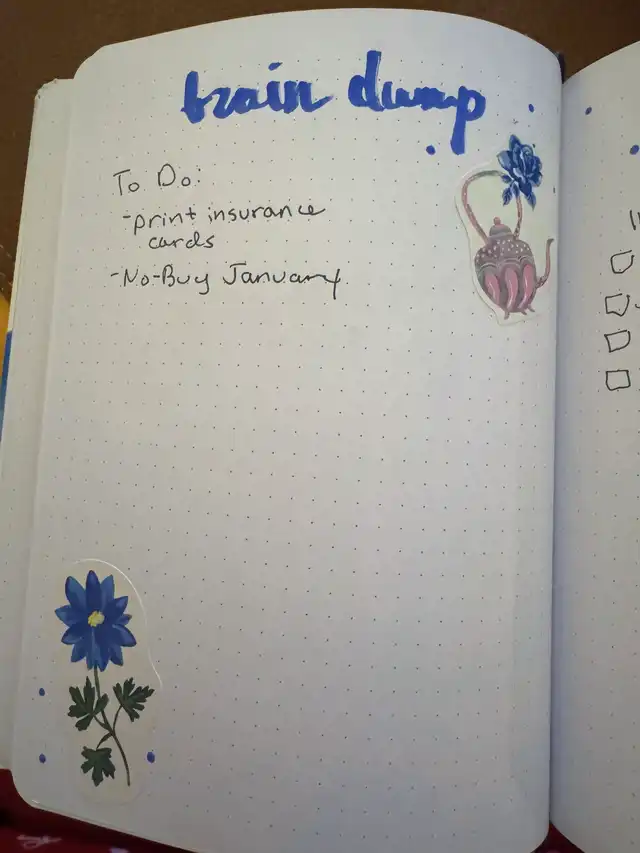 brain dump
To Do:
-print insurance
cards
-No-Buy January